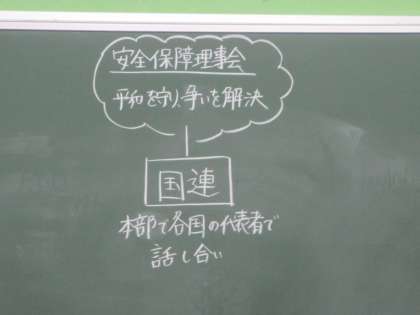 安全保障理事会
平和を守り、争いを解決
国連
本部で各国の代表者で
話し合い